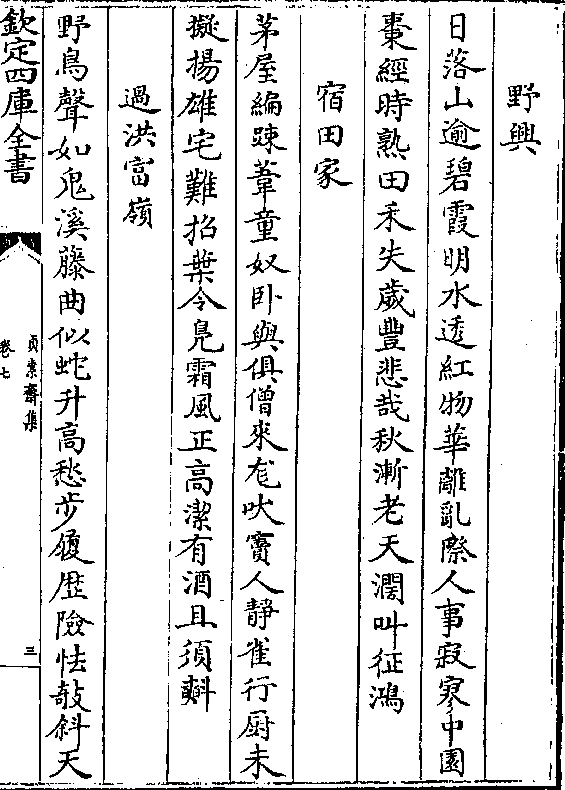 野興
日落山逾碧霞明水透紅物華離亂際人事寂寥中園
棗經時熟田禾失歲豐悲哉秋漸老天濶叫征鴻
宿田家
茅屋編踈葦童奴卧與俱僧來尨吠竇人靜雀行厨未
擬揚雄宅難招葉令鳬霜風正高潔有酒且須㪺
過洪富嶺
野鳥聲如鬼溪藤曲似蛇升高愁步履歴險怯敧斜天
欽定四庫全書
貞素齋集
卷七
三